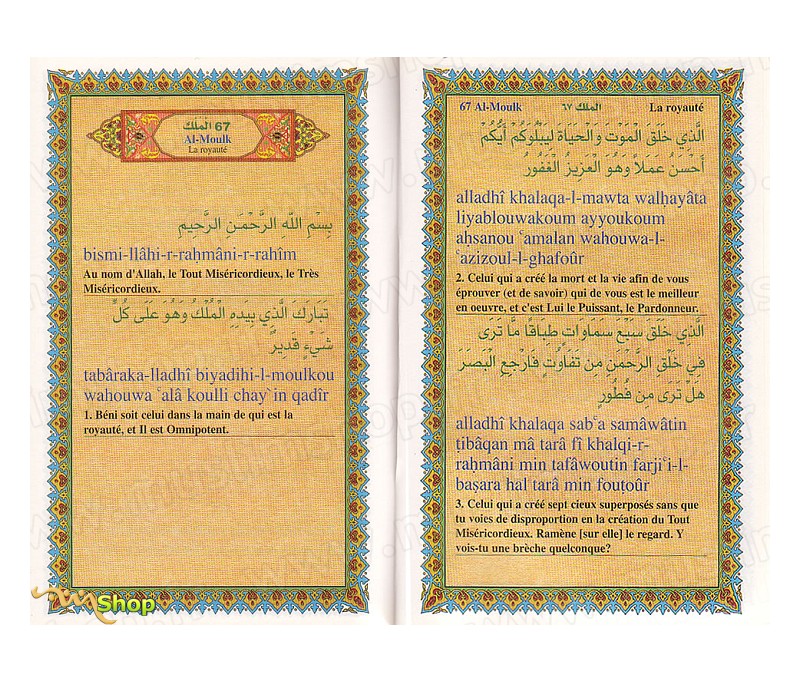 67 الملك
Al-Moulk
La royauté
بِسْمِ اللَّهِ الرَّحْمَنِ الرَّحِيمِ
bismi-llâhi-r-raḥmâni-r-rahîm
Au nom d'Allah, le Tout Miséricordieux, le Très
Miséricordieux.
تَبَارَكَ الَّذِي بِيَدِهِ الْمُلْكُ وَهُوَ عَلَى كُلِّ
شَيْءٍ قَدِيرٌ
tabâraka-lladhî biyadihi-l-moulkou
wahouwa ʿalâ koulli chay`in qadîr
1. Béni soit celui dans la main de qui est la
royauté, et Il est Omnipotent.
MShop
67 Al-Moulk الملك ٦٧ La royauté
الَّذِي خَلَقَ الْمَوْتَ وَالْحَيَاةَ لِيَبْلُوَكُمْ أَيُّكُمْ
أَحْسَنُ عَمَلاً وَهُوَ الْعَزِيزُ الْغَفُورُ
alladhî khalaqa-l-mawta walḥayâta
liyablouwakoum ayyoukoum
aḥsanou ʿamalan wahouwa-l-
ʿazizoul-l-ghafoûr
2. Celui qui a créé la mort et la vie afin de vous
éprouver (et de savoir) qui de vous est le meilleur
en oeuvre, et c'est Lui le Puissant, le Pardonneur.
الَّذِي خَلَقَ سَبْعَ سَمَاوَاتٍ طِبَاقًا مَّا تَرَى
فِي خَلْقِ الرَّحْمَنِ مِن تَفَاوُتٍ فَارْجِعِ الْبَصَرَ
هَلْ تَرَى مِن فُطُورٍ
alladhî khalaqa sabʿa samâwâtin
ṭibâqan mâ tarâ fî khalqi-r-
raḥmâni min tafâwoutin farjiʿi-l-
baṣara hal tarâ min fouṭoûr
3. Celui qui a créé sept cieux superposés sans que
tu voies de disproportion en la création du Tout
Miséricordieux. Ramène [sur elle] le regard. Y
vois-tu une brèche quelconque?